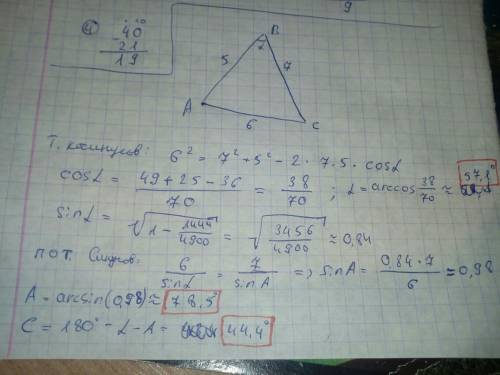 9
④ 40
- 21
19
10
B
α
5
7
A
6
C
Т. косинусов: 6² = 7² + 5² - 2 · 7 · 5 · cosα
cosα = (49 + 25 - 36)/70 = 38/70 ; α = arccos 38/70 ≈ 57,1°
sinα = √(1 - 1444/4900) = √(3456/4900) ≈ 0,84
по т. Синусов: 6/sinα = 7/sinA => sinA = (0,84 · 7)/6 ≈ 0,98
A = arcsin(0,98) ≈ 78,5°
C = 180° - α - A = 44,4°